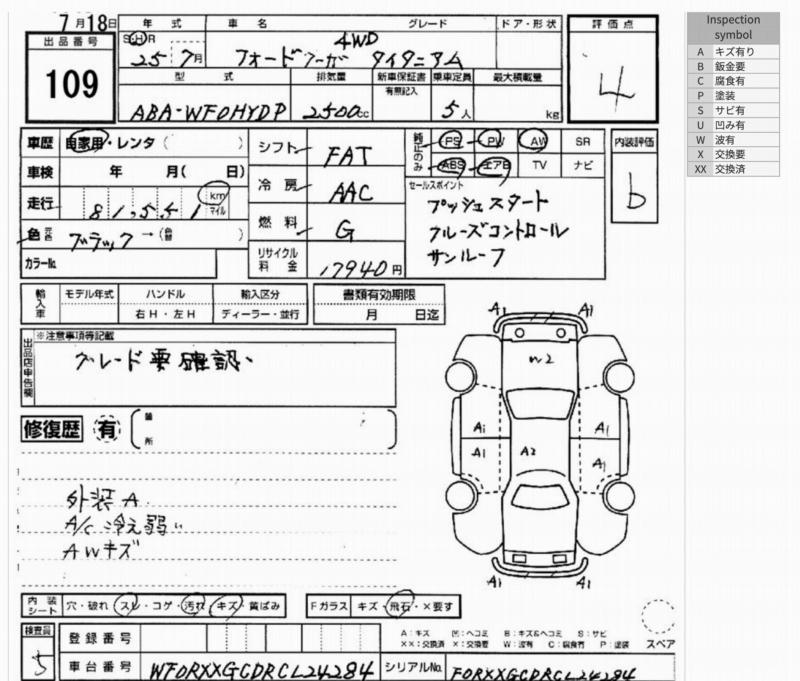 7月18日
出品番号
109
年式
車名
グレード
ドア・形状
SHR
25 7月
4WD
フォード クーガ タイタニアム
型式
排気量
新車保証書
有無記入
乗車定員
最大積載量
ABA-WF0HYDP
2500cc
5人
kg
評価点
4
車歴
自家用・レンタ( )
車検
年 月( 日)
走行
81,551
km
マイル
色
元色
ブラック→(色替 )
カラーNo.
シフト
FAT
冷房
AAC
燃料
G
リサイクル料金
17940円
純正のみ
PS
PW
AW
SR
ABS
エアB
TV
ナビ
セールスポイント
プッシュスタート
クルーズコントロール
サンルーフ
内装評価
b
輸入車
モデル年式
ハンドル
右H・左H
輸入区分
ディーラー・並行
書類有効期限
月 日迄
出品店申告欄
※注意事項等記載
グレード要確認
修復歴
有
箇所
外装A
A/C冷え弱い
AWキズ
A1
A1
W2
A1
A1
A1
A2
A1
A1
A1
内装シート
穴・破れ・スレ・コゲ・汚れ・キズ・黄ばみ
Fガラス
キズ・飛石・×要す
検査員
5
登録番号
車台番号
WF0RXXGCDRCL24284
A:キズ 凹:ヘコミ B:キズ&ヘコミ S:サビ
XX:交換済 X:交換要 W:波有 C:腐食有 P:塗装
スペア
シリアルNo.
F0RXXGCDRCL24284
Inspection symbol
A キズ有り
B 鈑金要
C 腐食有
P 塗装
S サビ有
U 凹み有
W 波有
X 交換要
XX 交換済